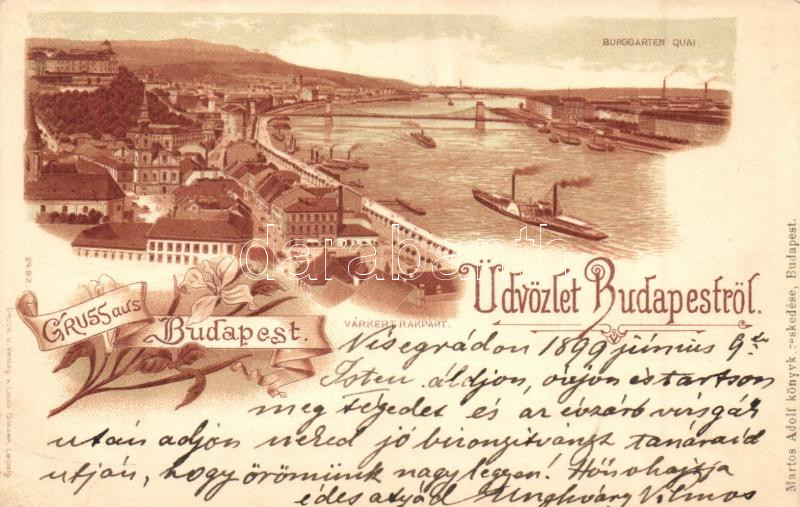 BURGGARTEN QUAI.
darabanth.com
2482.
Üdvözlet Budapestről.
GRUSS aus
Budapest.
VÁRKERT RAKPÁRT.
Druck u. Verlag v. Louis Glaser, Leipzig.
Martos Adolf könyvkereskedése, Budapest.
Visegrádon 1899 június 9.
Isten áldjon, óvjon és tartson
meg tégedet és az évzáró vizsgák
után adjon neked jó bizonyítványt tanáraid
utján, hogy örömünk nagy legyen!
édes atyád Unghváry Vilmos